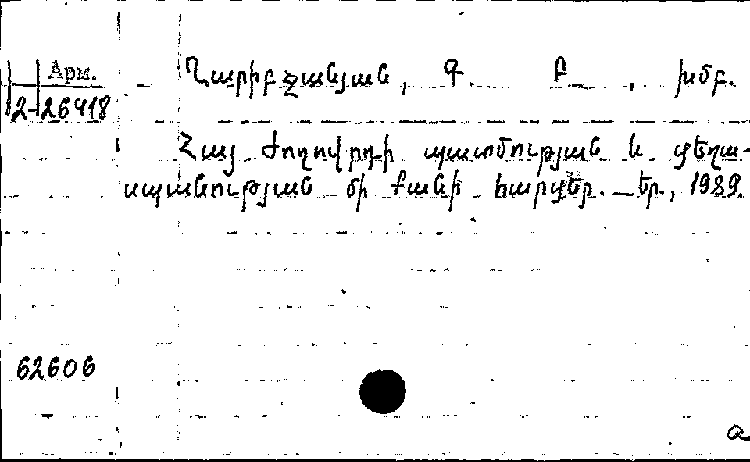 Арм.
2-26418
Ղարիբջանյան, Գ. Բ., խմբ.
Հայ ժողովրդի պատմության և ցեղա-
սպանության մի քանի հարցեր. — Եր., 1989.
62606
а